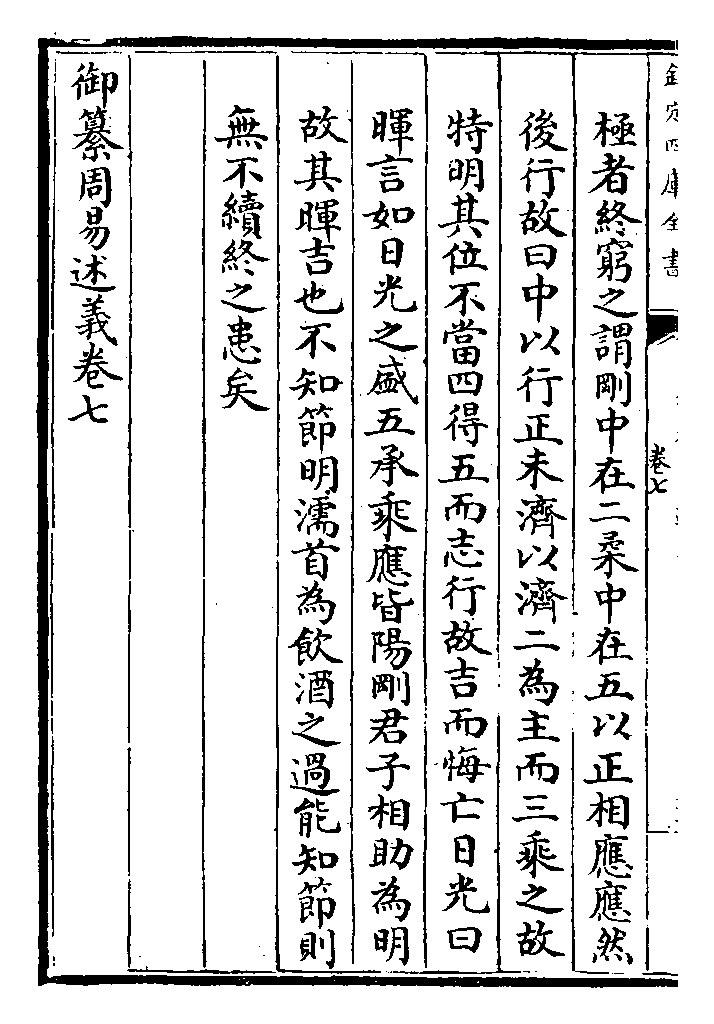 欽定四庫全書
卷七
極者終窮之謂剛中在二柔中在五以正相應應然
後行故曰中以行正未濟以濟二為主而三乘之故
特明其位不當四得五而志行故吉而悔亡日光曰
暉言如日光之盛五承乘應皆陽剛君子相助為明
故其暉吉也不知節明濡首為飲酒之過能知節則
無不續終之患矣
御纂周易述義卷七